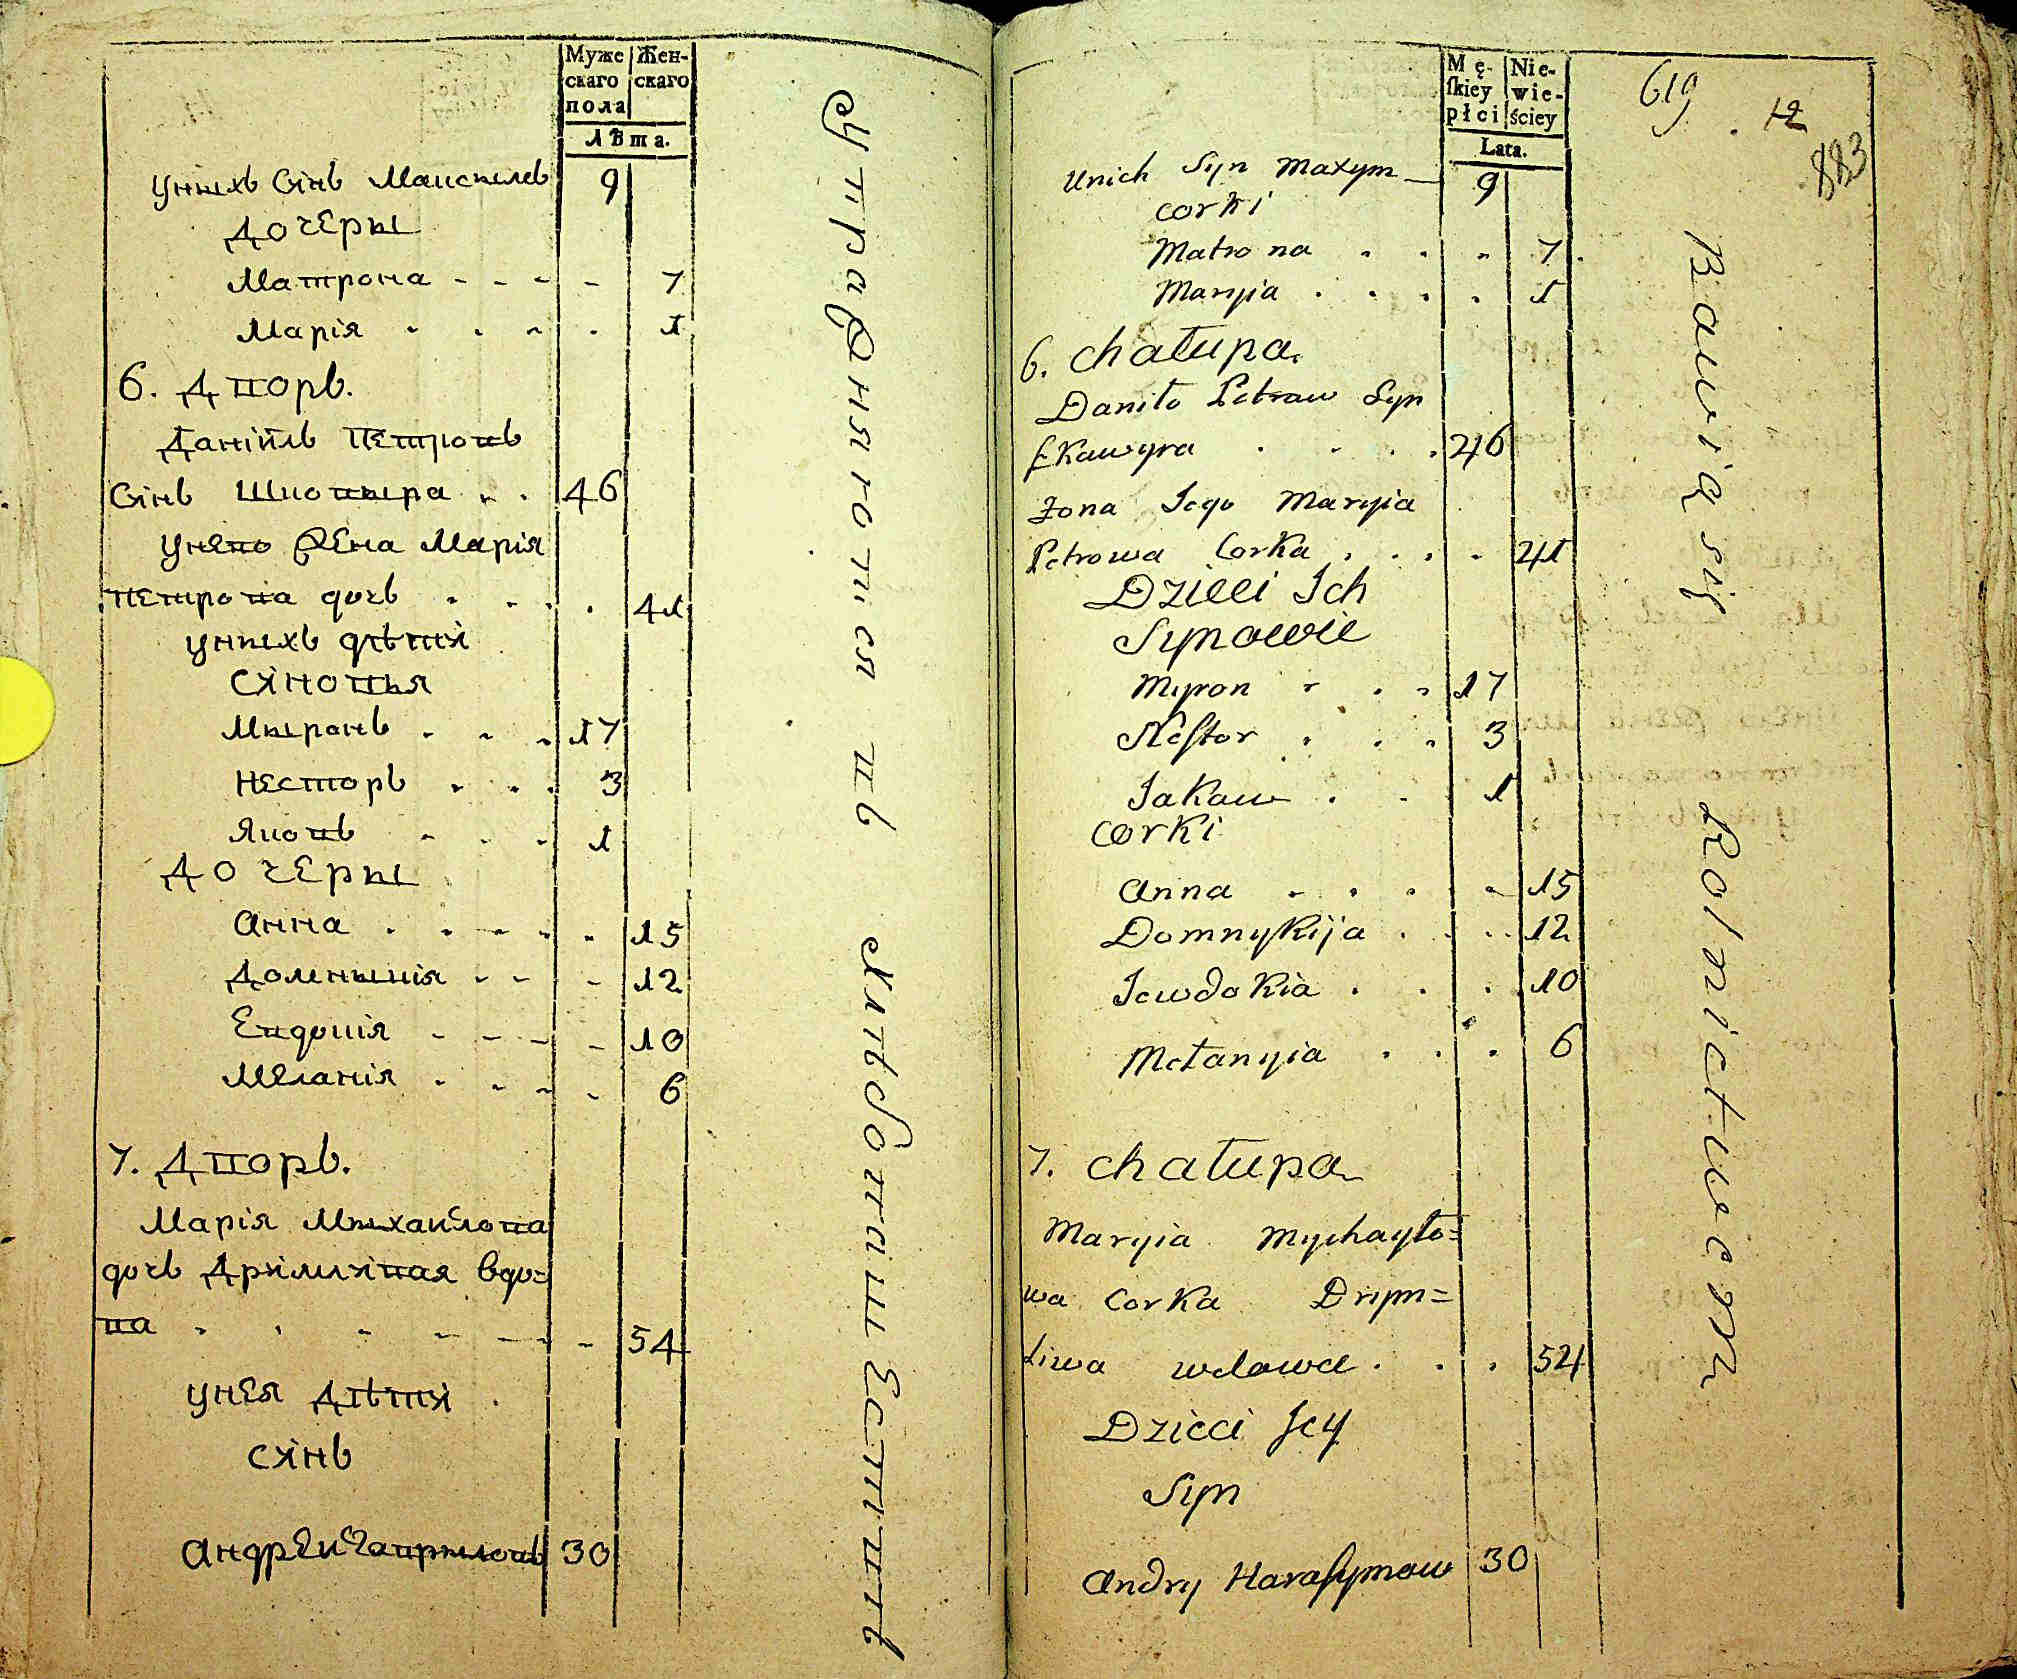 Муже
скаго
пола
Жен-
скаго
Лѣта.
унихъ Сінъ Максимъ 9
Дочеры
Матрона 7
Марія 1
6. Дворъ.
Даніилъ Петровъ
Сінъ Шковыра 46
унево жена Марія
Петрова дочь 41
унихъ дѣти
Сіновья
Миронъ 17
Несторъ 3
Яковъ 1
Дочеры
Анна 15
Домникія 12
Евдокія 10
Меланія 6
7. Дворъ.
Марія Михайлова
дочь Дримлівая вдо=
ва 54
унея Дѣти
Сінъ
Андрей 30
упражняются въ хлѣбопашествѣ
Mę-
ſkiey
płci
Nie-
wie-
ściey
Lata.
619
12
883
Unich Syn Maxym 9
Corki
Matrona 7
Maryia 1
6. Chałupa.
Daniło Petraw Syn
Szkawyra 46
Żona Jego Maryia
Petrowa Corka 41
Dzieci Ich
Synowie
Myron 17
Neſtor 3
Jakaw 1
Corki
Anna 15
Domnykija 12
Jewdokia 10
Mełanyia 6
7. Chałupa
Maryia Mychayło=
wa Corka Drym=
liwa wdowa 54
Dzieci Jey
Syn
Andry Haraſymow 30
Bawią się Rolnictwem